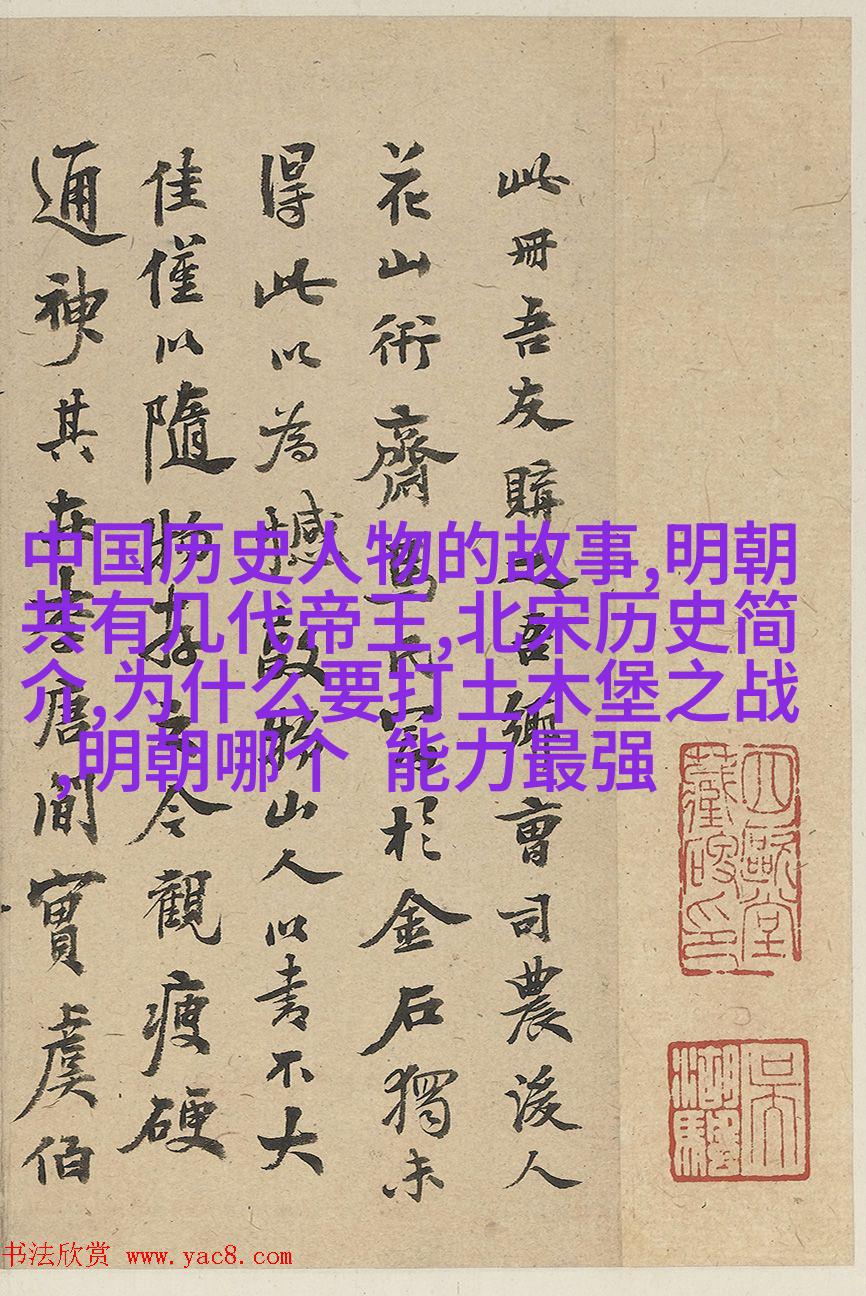 此冊吾友購之吾鄉曹司農後人
花山術齋氏富於金石獨未
得此以為憾山人以書不大
佳僅以隨物存之今觀瘦硬
通神其在李唐間實虞伯
中国历史人物的故事,明朝
共有几代帝王,北宋历史简
介,为什么要打土木堡之战
,明朝哪个 能力最强
四歐堂
书法欣赏 www.yac8.com